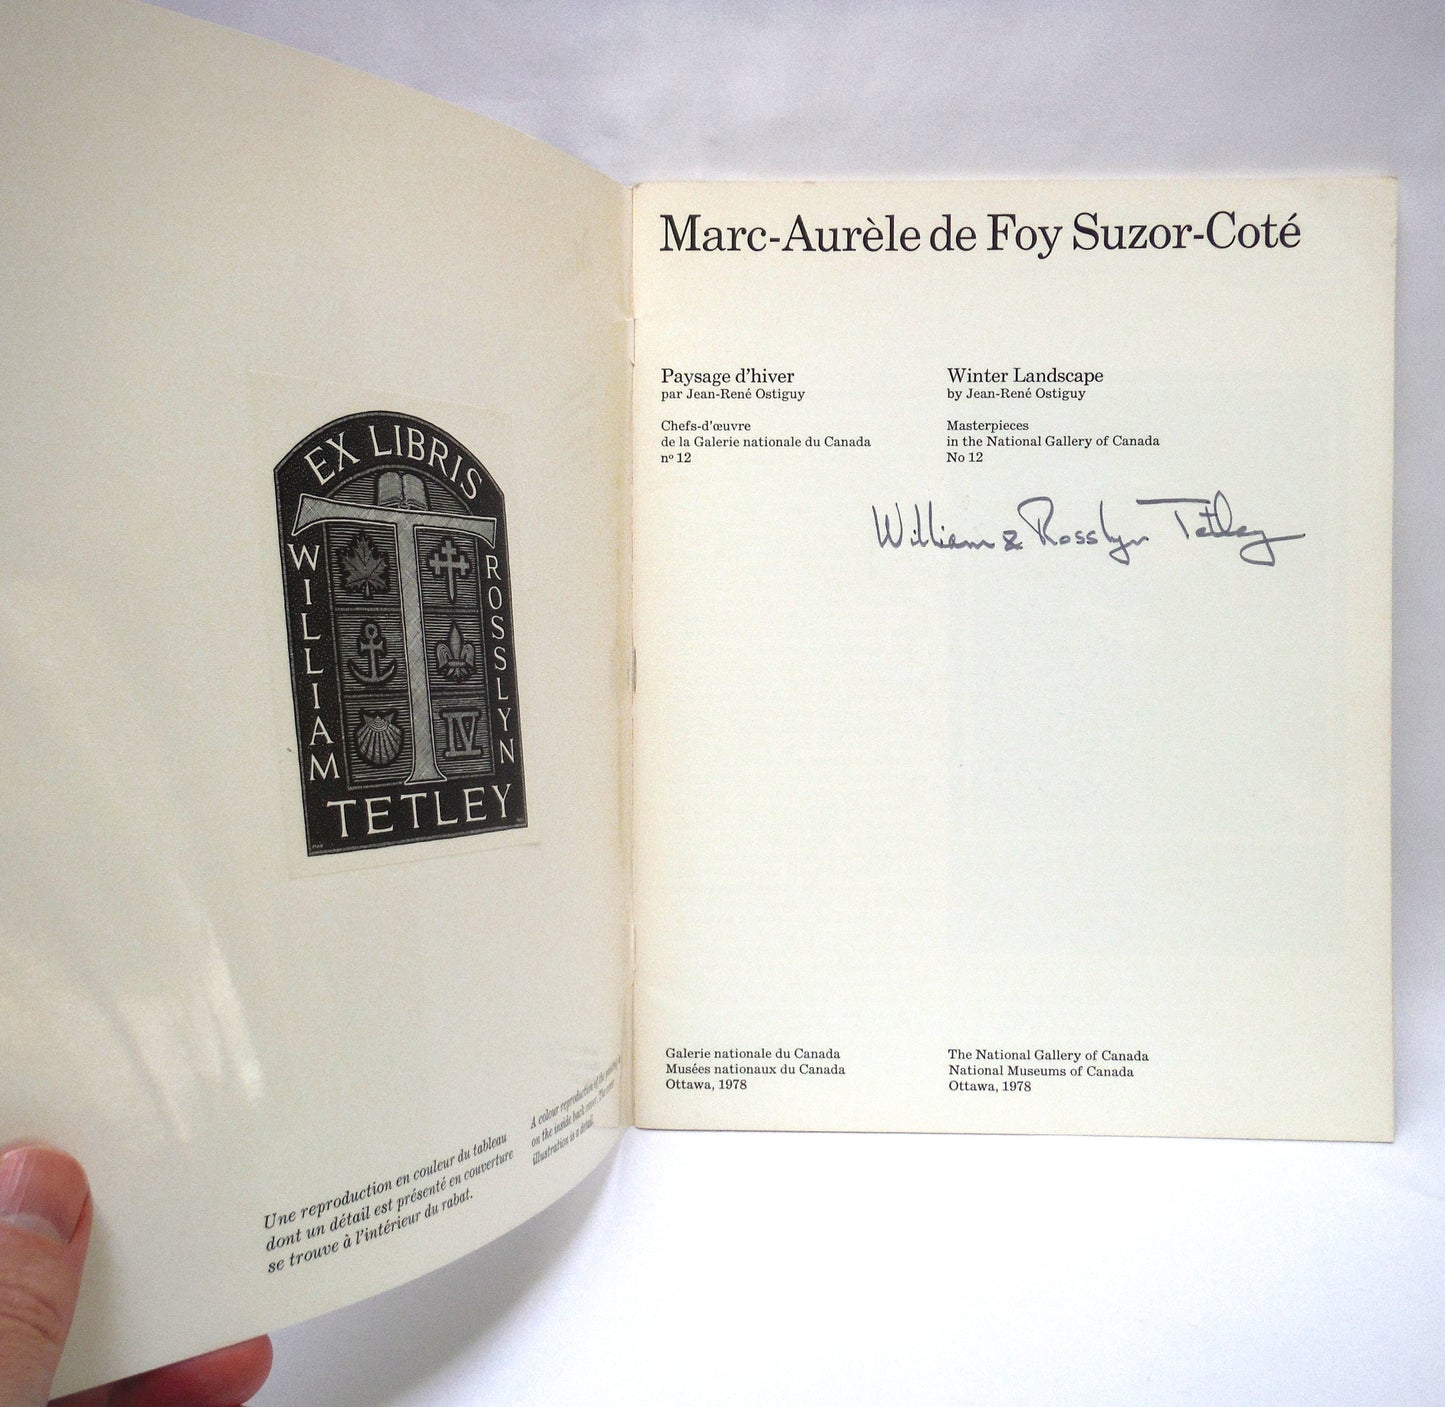 EX LIBRIS
WILLIAM
ROSSLYN
IV
TETLEY
Une reproduction en couleur du tableau
dont un détail est présenté en couverture
se trouve à l'intérieur du rabat.
A colour reproduction of the painting is
on the inside back cover. The cover
illustration is a detail.
Marc-Aurèle de Foy Suzor-Coté
Paysage d'hiver
par Jean-René Ostiguy
Chefs-d'œuvre
de la Galerie nationale du Canada
nº 12
Winter Landscape
by Jean-René Ostiguy
Masterpieces
in the National Gallery of Canada
No 12
William & Rosslyn Tetley
Galerie nationale du Canada
Musées nationaux du Canada
Ottawa, 1978
The National Gallery of Canada
National Museums of Canada
Ottawa, 1978